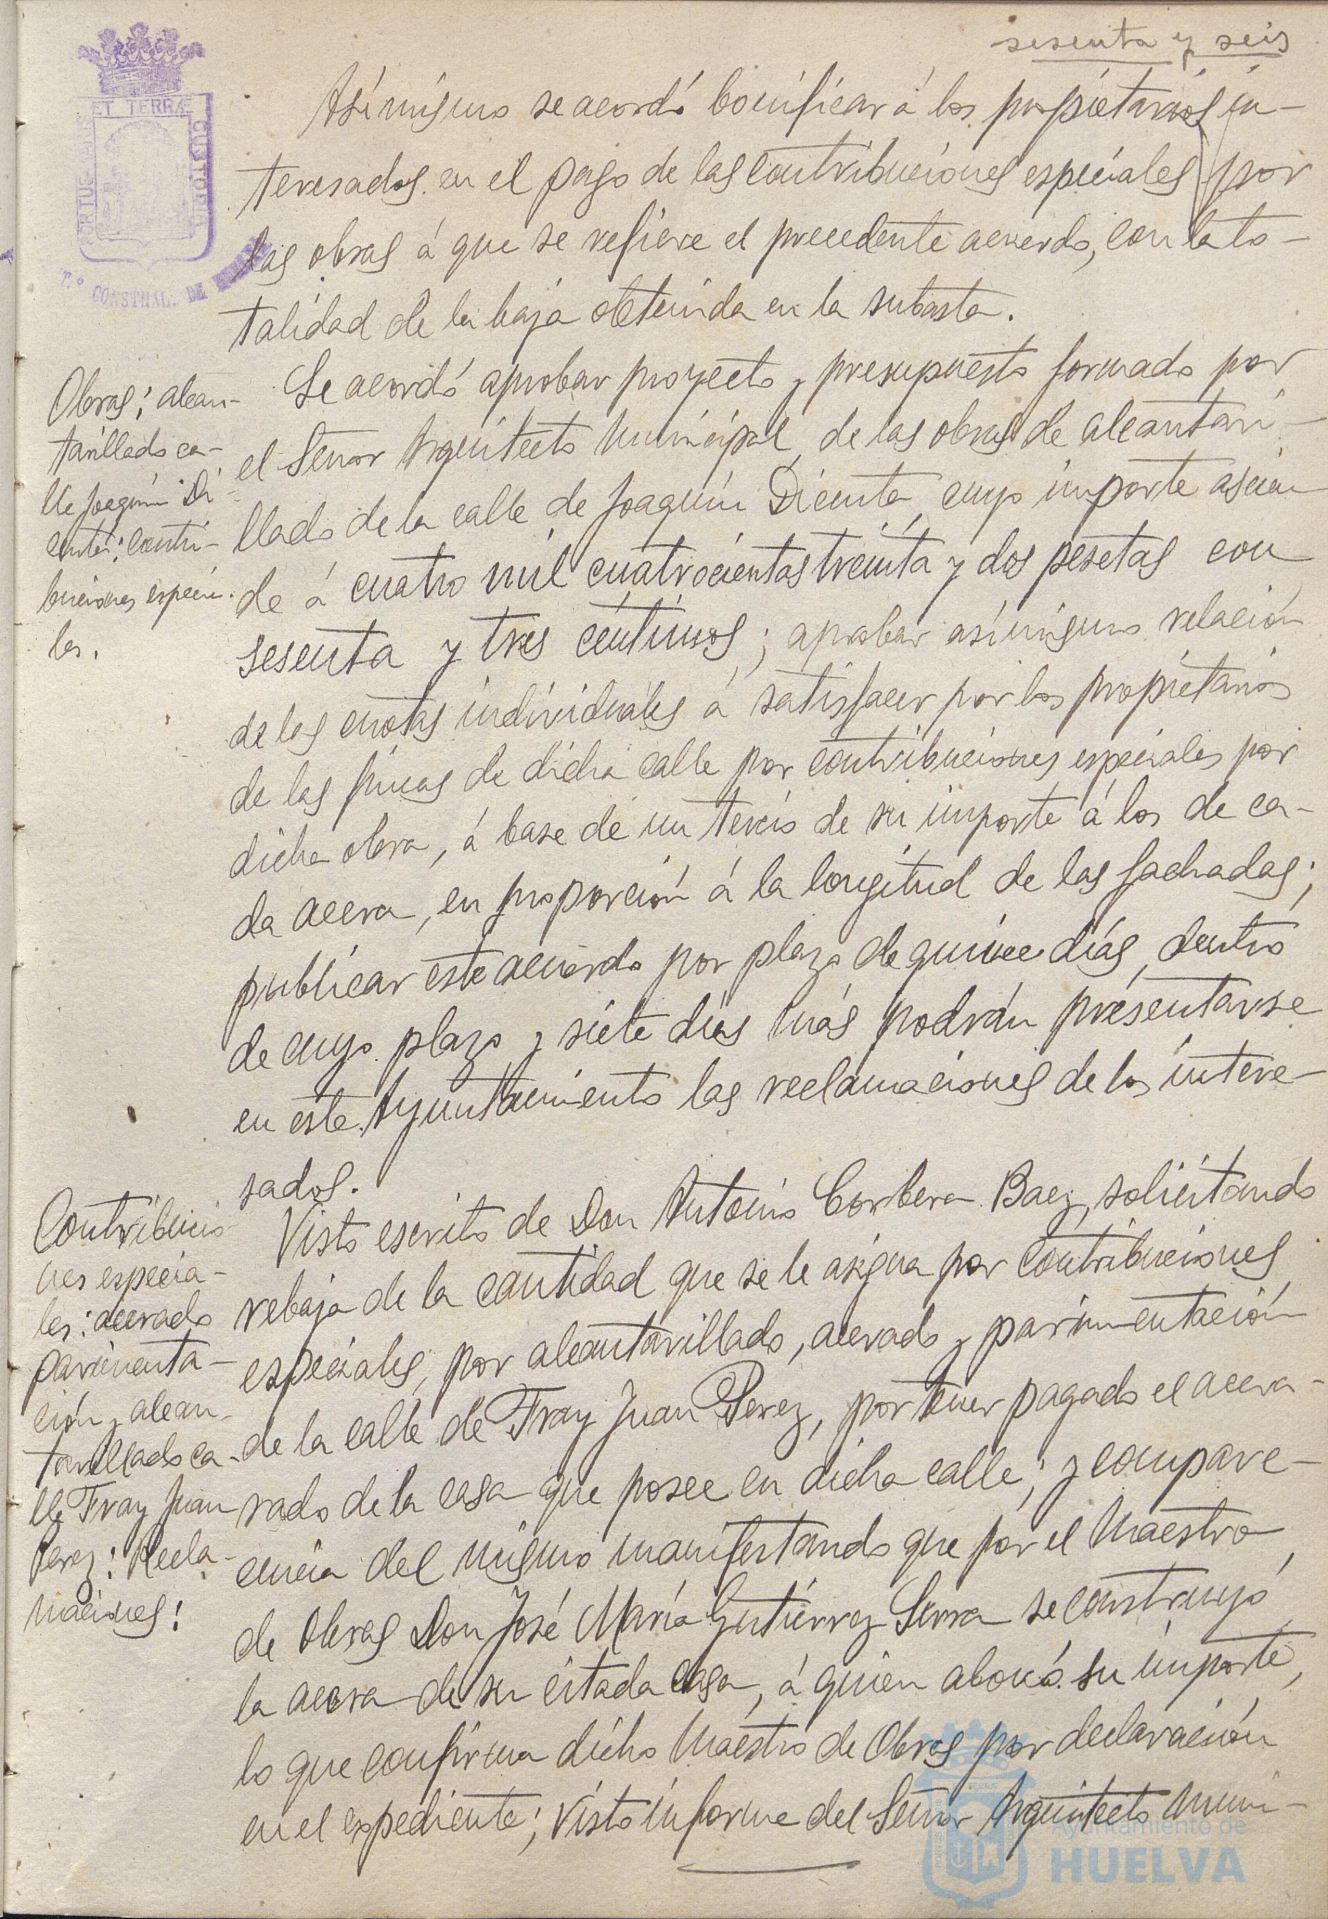 sesenta y seis
PORTUS MARIS ET TERRÆ CUSTODIA
CONSTNAL. DE
Asímismo se acordó bonificar á los propietarios in-
teresados en el pago de las contribuciones especiales por
las obras á que se refiere el precedente acuerdo, con la to-
talidad de la baja obtenida en la subasta.
Obras; alcan-
tarillado ca-
lle Joaquín Di-
centa; contri-
buciones especia-
les.
Se acordó aprobar proyecto y presupuesto formado por
el Señor Arquitecto Municipal, de las obras de alcantari-
llado de la calle de Joaquín Dicenta, cuyo importe ascien-
de á cuatro mil cuatrocientas treinta y dos pesetas con
sesenta y tres céntimos; aprobar asímismo relación
de las cuotas individuales á satisfacer por los propietarios
de las fincas de dicha calle por contribuciones especiales por
dicha obra, á base de un tercio de su importe á los de ca-
da acera, en proporción á la longitud de las fachadas;
publicar este acuerdo por plazo de quince días, dentro
de cuyo plazo y siete días más podrán presentarse
en este Ayuntamiento las reclamaciones de los intere-
sados.
Contribucio-
nes especia-
les: acerado
pavimenta-
ción y alcan-
tarillado ca-
lle Fray Juan
Perez: Recla-
maciones:
Visto escrito de Don Antonio Corbera Baez, solicitando
rebaja de la cantidad que se le asigna por contribuciones
especiales, por alcantarillado, acerado y pavimentación
de la calle de Fray Juan Perez, por tener pagado el acera-
rado de la casa que posee en dicha calle; y compare-
cencia del mismo manifestando que por el Maestro
de Obras Don José María Gutiérrez Serra se construyó
la acera de su citada casa, á quien abonó su importe,
lo que confirma dicho Maestro de Obras por declaración
en el expediente; Visto informe del Señor Arquitecto Muni-
Ayuntamiento de
HUELVA